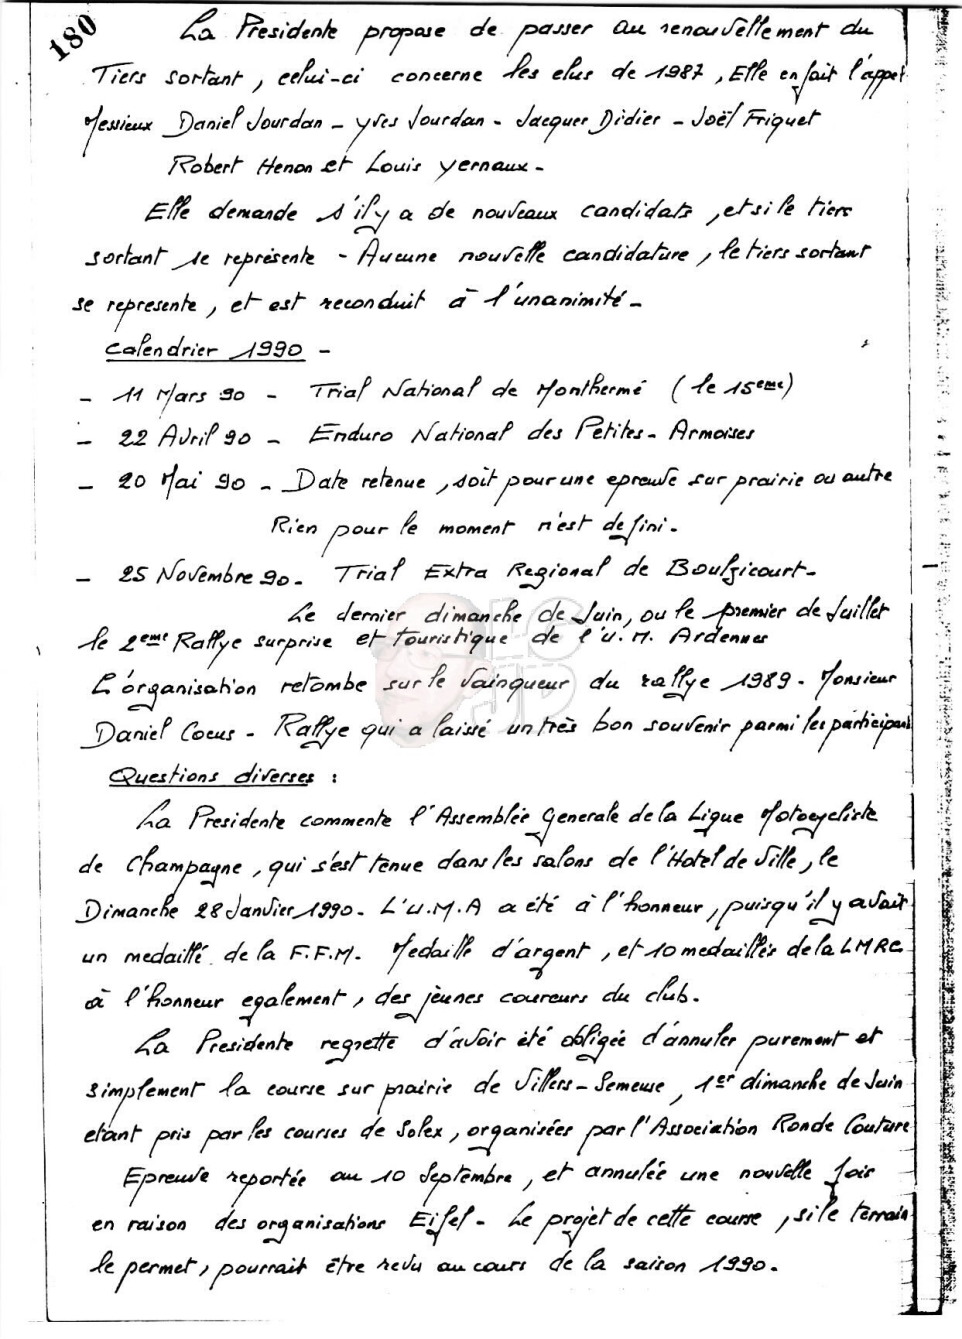 180
La Presidente propose de passer au renouvellement du
Tiers sortant, celui-ci concerne les elus de 1987, Elle en fait l'appel
Messieux Daniel Jourdan - Yves Jourdan - Jacques Didier - Joël Friquet
Robert Henon et Louis Yernaux -
Elle demande s'il y a de nouveaux candidats, et si le tiers
sortant se représente - Aucune nouvelle candidature, le tiers sortant
se represente, et est reconduit à l'unanimité -
Calendrier 1990 -
- 11 Mars 90 - Trial National de Monthermé (le 15eme)
- 22 Avril 90 - Enduro National des Petites-Armoises
- 20 Mai 90 - Date retenue, soit pour une epreuve sur prairie ou autre
Rien pour le moment n'est defini.
- 25 Novembre 90 - Trial Extra Regional de Boulzicourt -
Le dernier dimanche de Juin, ou le premier de Juillet
le 2eme Rallye surprise et touristique de l'U.M. Ardennes
L'organisation retombe sur le vainqueur du rallye 1989 - Monsieur
Daniel Coeus - Rallye qui a laissé un très bon souvenir parmi les participan
Questions diverses :
La Presidente commente l'Assemblée Generale de la Ligue Motocycliste
de Champagne, qui s'est tenue dans les salons de l'Hotel de Ville, le
Dimanche 28 Janvier 1990. L'U.M.A a été à l'honneur, puisqu'il y avait
un medaillé de la F.F.M. Medaille d'argent, et 10 medaillés de la LMRC
à l'honneur egalement, des jeunes coureurs du club.
La Presidente regrette d'avoir été obligée d'annuler purement et
simplement la course sur prairie de Villers-Semeuse, 1er dimanche de Juin
etant pris par les courses de Solex, organisées par l'Association Ronde Couture
Epreuve reportée au 10 Septembre, et annulée une nouvelle fois
en raison des organisations Eifel - Le projet de cette course, si le terrain
le permet, pourrait être revu au cours de la saison 1990.